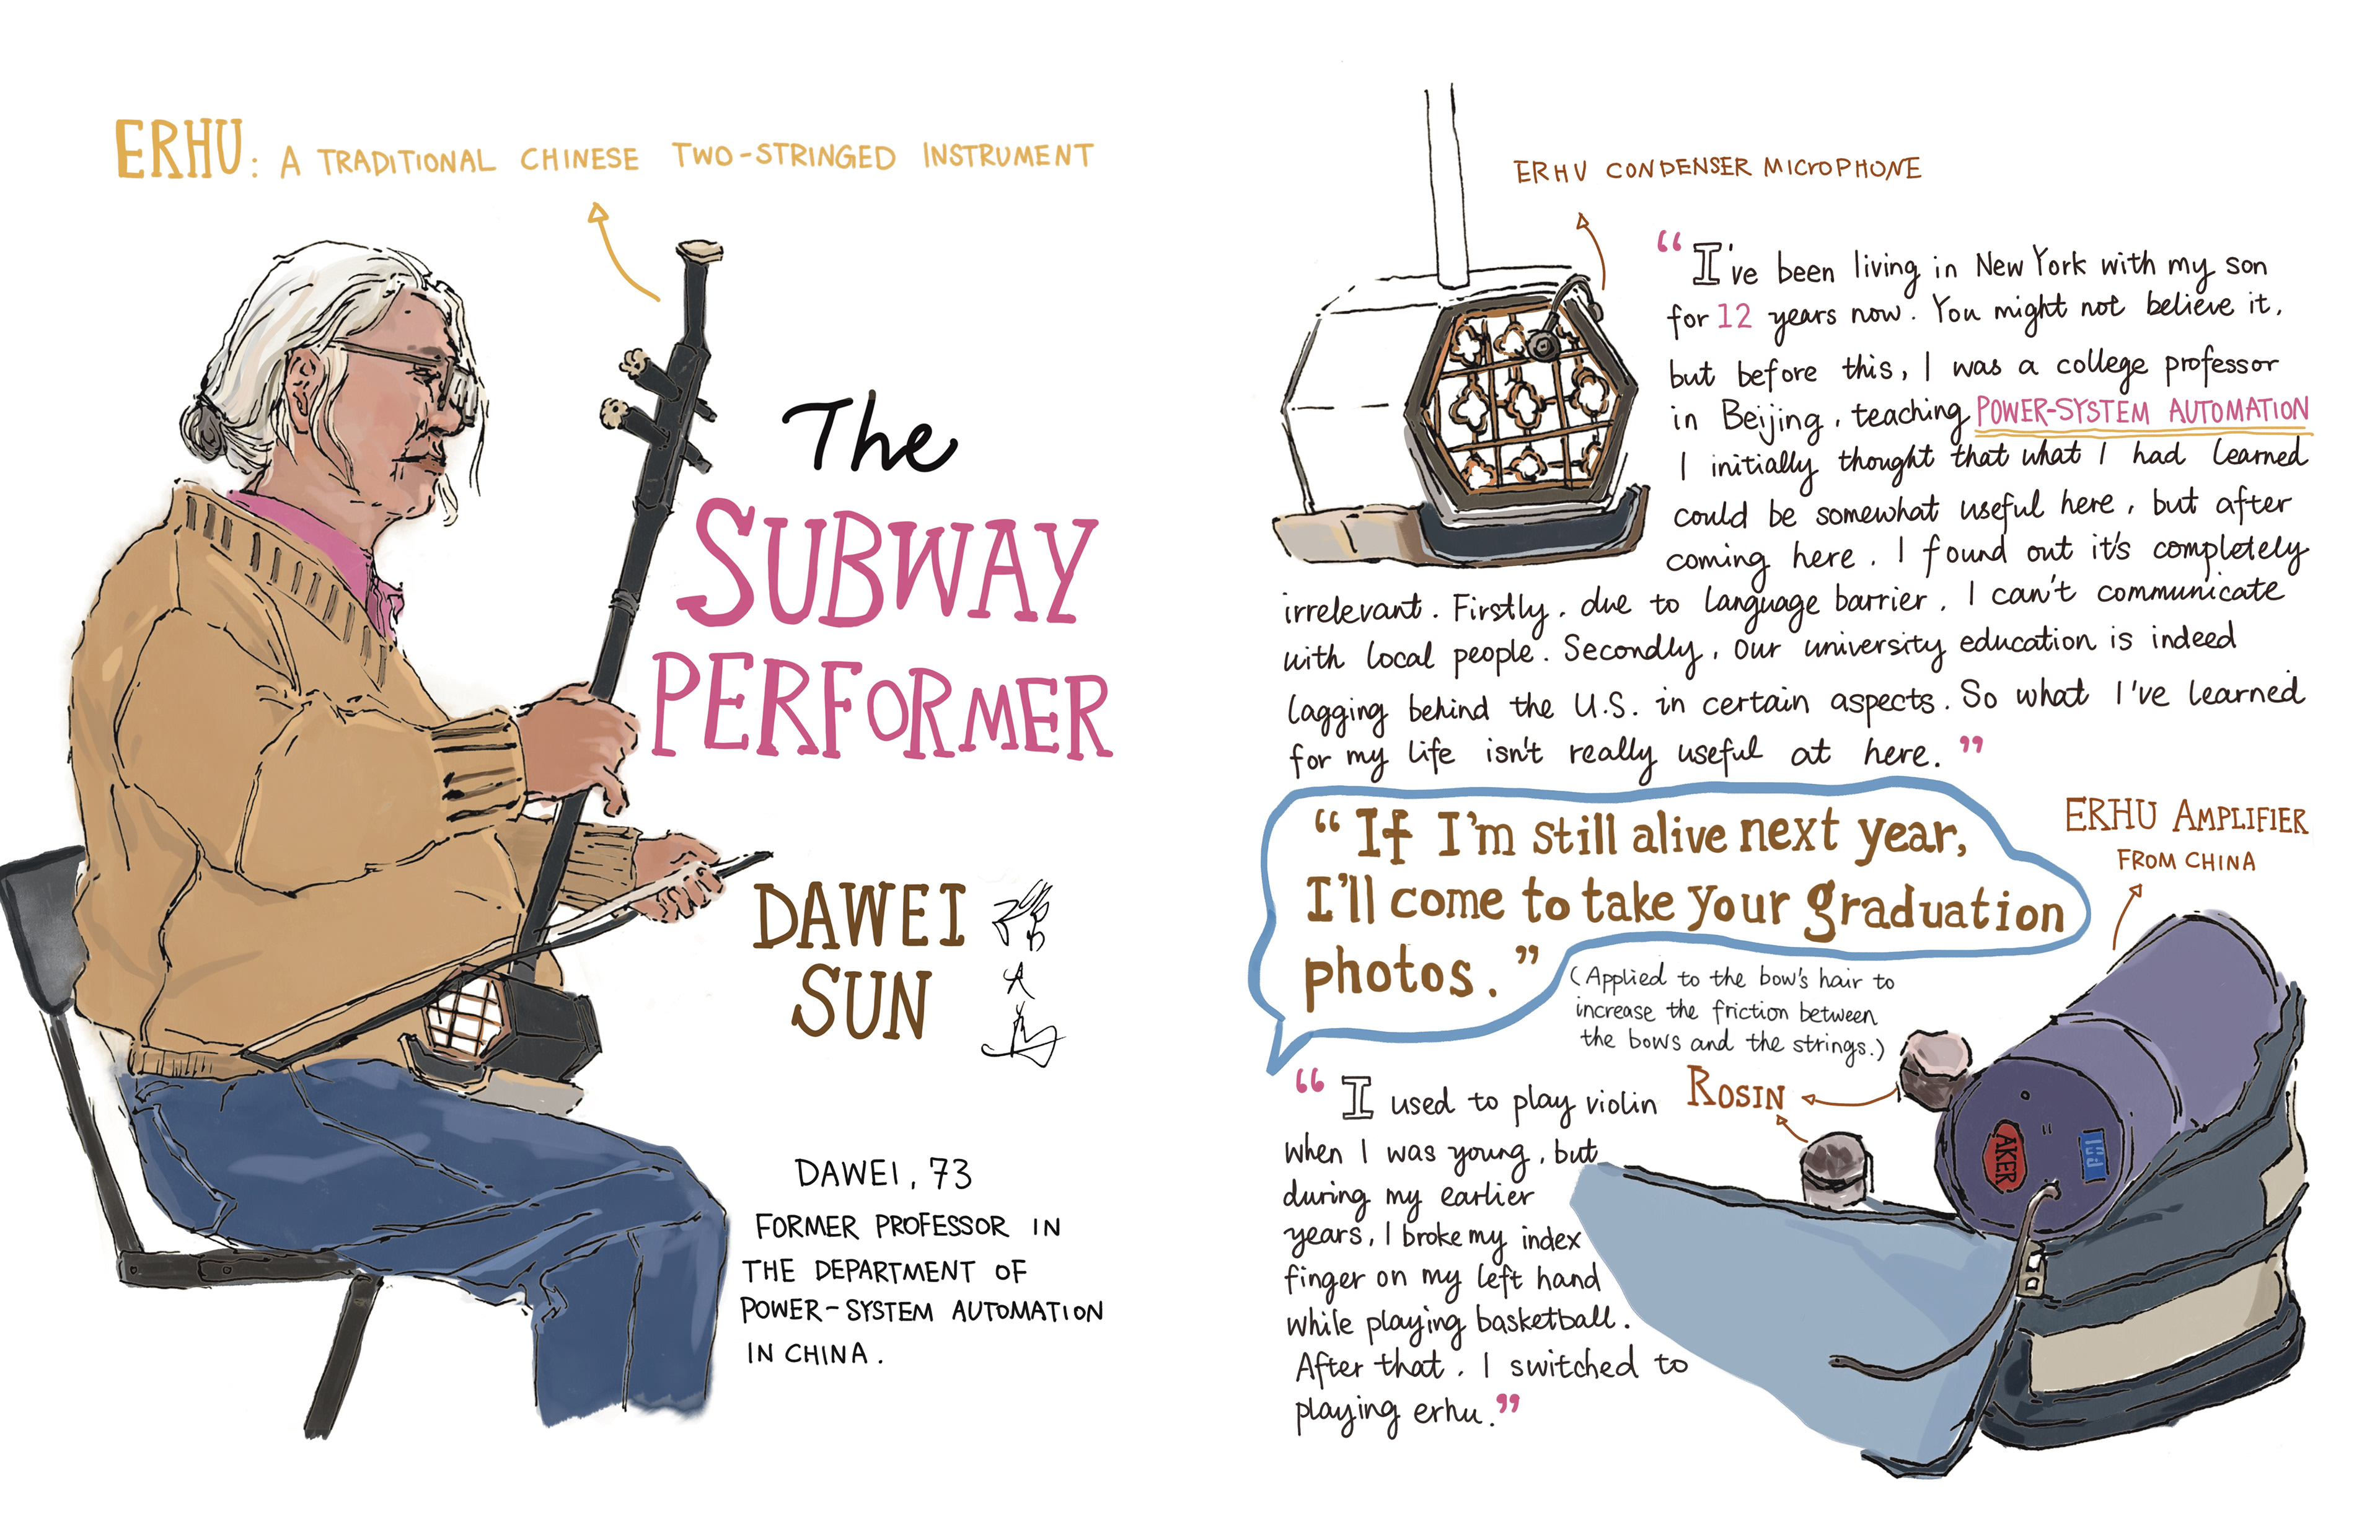 ERHU: A TRADITIONAL CHINESE TWO-STRINGED INSTRUMENT
The
SUBWAY
PERFORMER
DAWEI
SUN
DAWEI, 73
FORMER PROFESSOR IN
THE DEPARTMENT OF
POWER-SYSTEM AUTOMATION
IN CHINA.
ERHU CONDENSER MICROPHONE
“I've been living in New York with my son
for 12 years now. You might not believe it,
but before this, I was a college professor
in Beijing, teaching POWER-SYSTEM AUTOMATION
I initially thought that what I had learned
could be somewhat useful here, but after
coming here. I found out it's completely
irrelevant. Firstly, due to language barrier, I can't communicate
with local people. Secondly, our university education is indeed
lagging behind the U.S. in certain aspects. So what I've learned
for my life isn't really useful at here.”
“If I'm still alive next year,
I'll come to take your graduation
photos.”
ERHU AMPLIFIER
FROM CHINA
(Applied to the bow's hair to
increase the friction between
the bows and the strings.)
ROSIN
“I used to play violin
when I was young, but
during my earlier
years, I broke my index
finger on my left hand
while playing basketball.
After that, I switched to
playing erhu.”
AKER